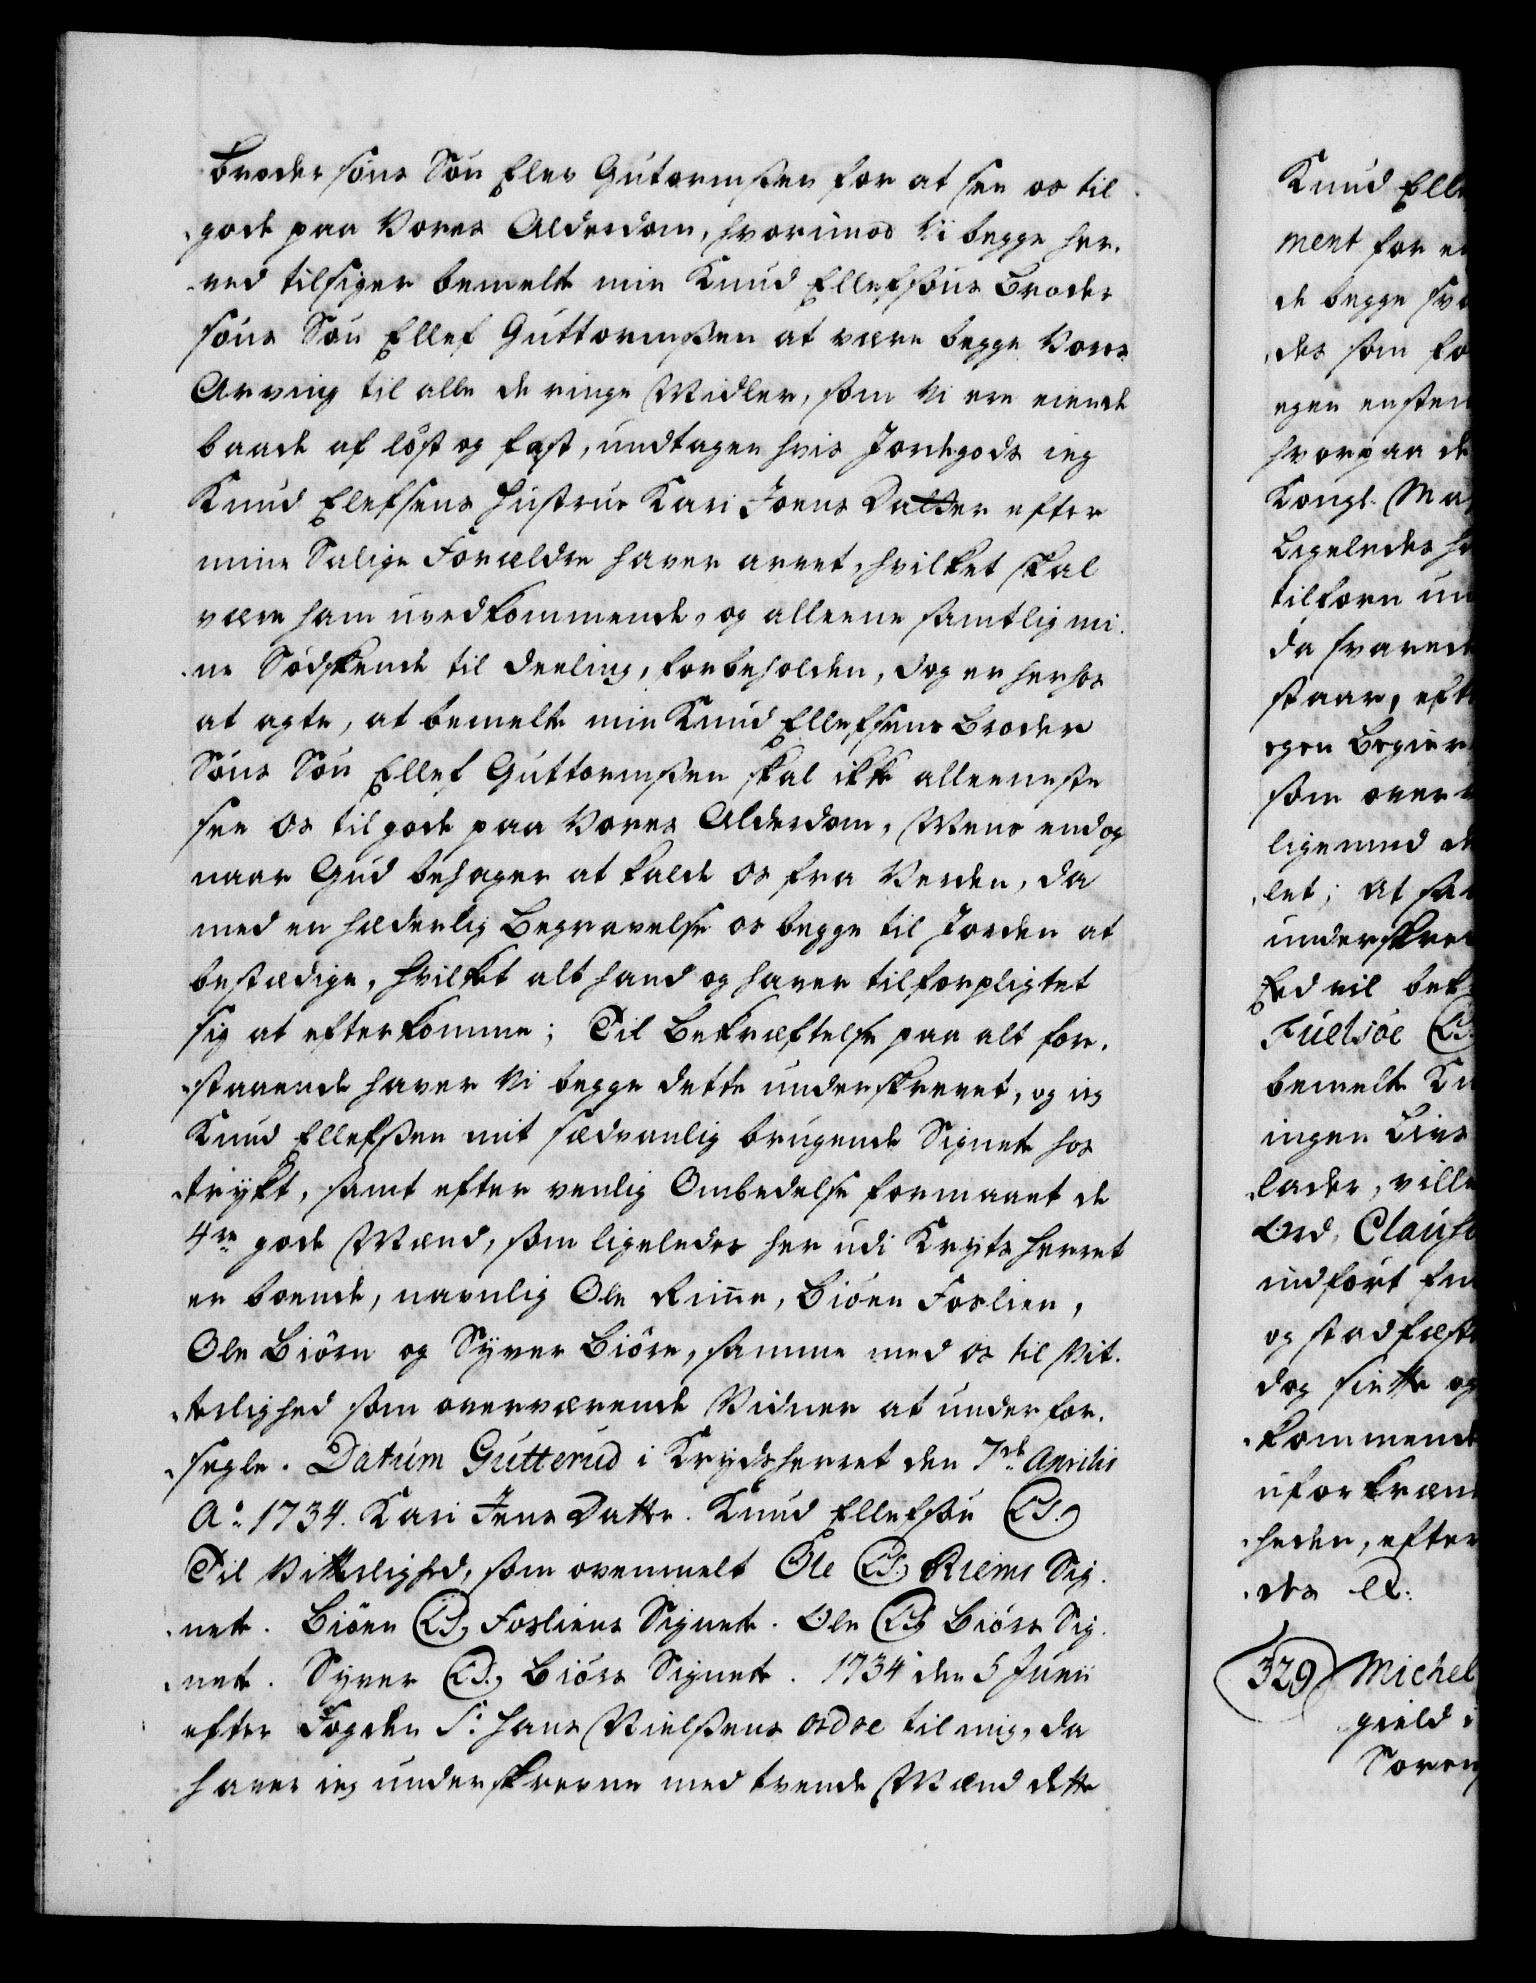 Broder söns Sön Elev Gutormsßen for at see os til
gode paa Vores Alderdom, hvorimod Vi begge her-
ved tilsiger bemelte min Knud Ellefsöns Broder
söns Sön Ellef Guttormsßen at være begge Vores
Arving til alle de ringe Midler, som Vi ere eiende
baade af löst og fast, undtagen hvis Jordegods ieg
Knud Elefsens Hustrue Kari Joens Datter efter
mine Salige Forældre haver arvet, hvilket skal
være ham uvedkommende, og alleene samtlig mi-
ne Södskende til deeling, forbeholden, dog er herhos
at agte, at bemelte min Knud Ellefsens Broder
Söns Sön Ellef Guttormsßen skal ikke alleeneste
see Os til gode paa Vores Alderdom, Mens endog
naar Gud behager at kalde Os fra Verden, da
med en hæderlig Begravelse os begge til Jorden at
bestædige, hvilket alt hand og haver tilforpligtet
sig at efterkomme; Til Bekræftelse paa alt for-
staaende haver Vi begge dette underskrevet, og ieg
Knud Ellefsßen mit sædvanlig brugende Signete hos
trykt, samt efter venlig Ombedelse formaaet de
4re gode Mænd, som ligeledes her udi Kryts herret
er boende, navnlig Ole Rime, Biöen Foslien,
Ole Biörn og Syver Biöre, samme med os til Vit-
terlighed som overværende Vidner at under for-
segle. Datum Gutterud i Krydsherret den 7de Aprilis
Ao 1734. Kari Jens Datter. Knud Ellefsön (LS.)
Til Vitterlighed, som ovenmelt Ole (LS.) Riems Sig-
nete. Biöen (LS.) Fosliens Signete. Ole (LS.) Biörs Sig-
nete. Syver (LS.) Biörs Signete. 1734 den 5 Junii
efter Fogden Sr Hans Nielsßens ordre til mig, da
haver ieg underskrevne med tvende Mænd dette
Knud Elle
ment for e
de begge sva
des som fo
egen ensten
hvorpaa de
Kongl. Ma
Ligeledes h
tilforn un
da svarede
staar, eft
egen Begier
som over
ligemed d
let; at sa
underskre
Eed vil bek
Fuelsöe (LS.
bemelte Kn
ingen Livs
lader, ville
Ord, Clausu
indfört fin
og stadfæste
dog siette og
kommende
uforkræn
heden, efter
des &c:
329 Michel
gield i
Soren